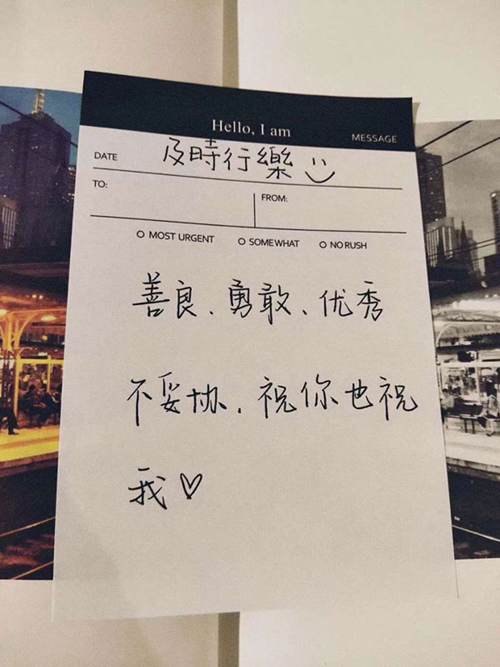 Hello, I am
MESSAGE
DATE 及時行樂
TO:
FROM:
O MOST URGENT O SOMEWHAT O NO RUSH
善良、勇敢、优秀
不妥协,祝你也祝
我♡